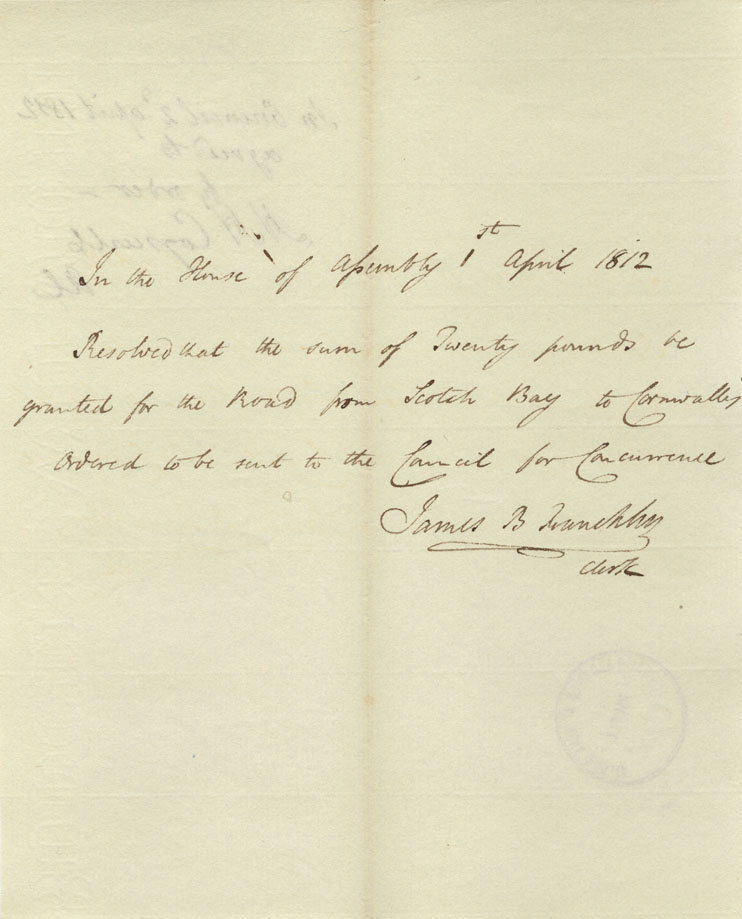 In the House of Assembly 1st April 1812
Resolved that the sum of Twenty pounds be
granted for the Road from Scotch Bay to Cornwallis
Ordered to be sent to the Council for Concurrence
James B Francklin
Clerk
In Council 2d April 1812
agreed to
by order